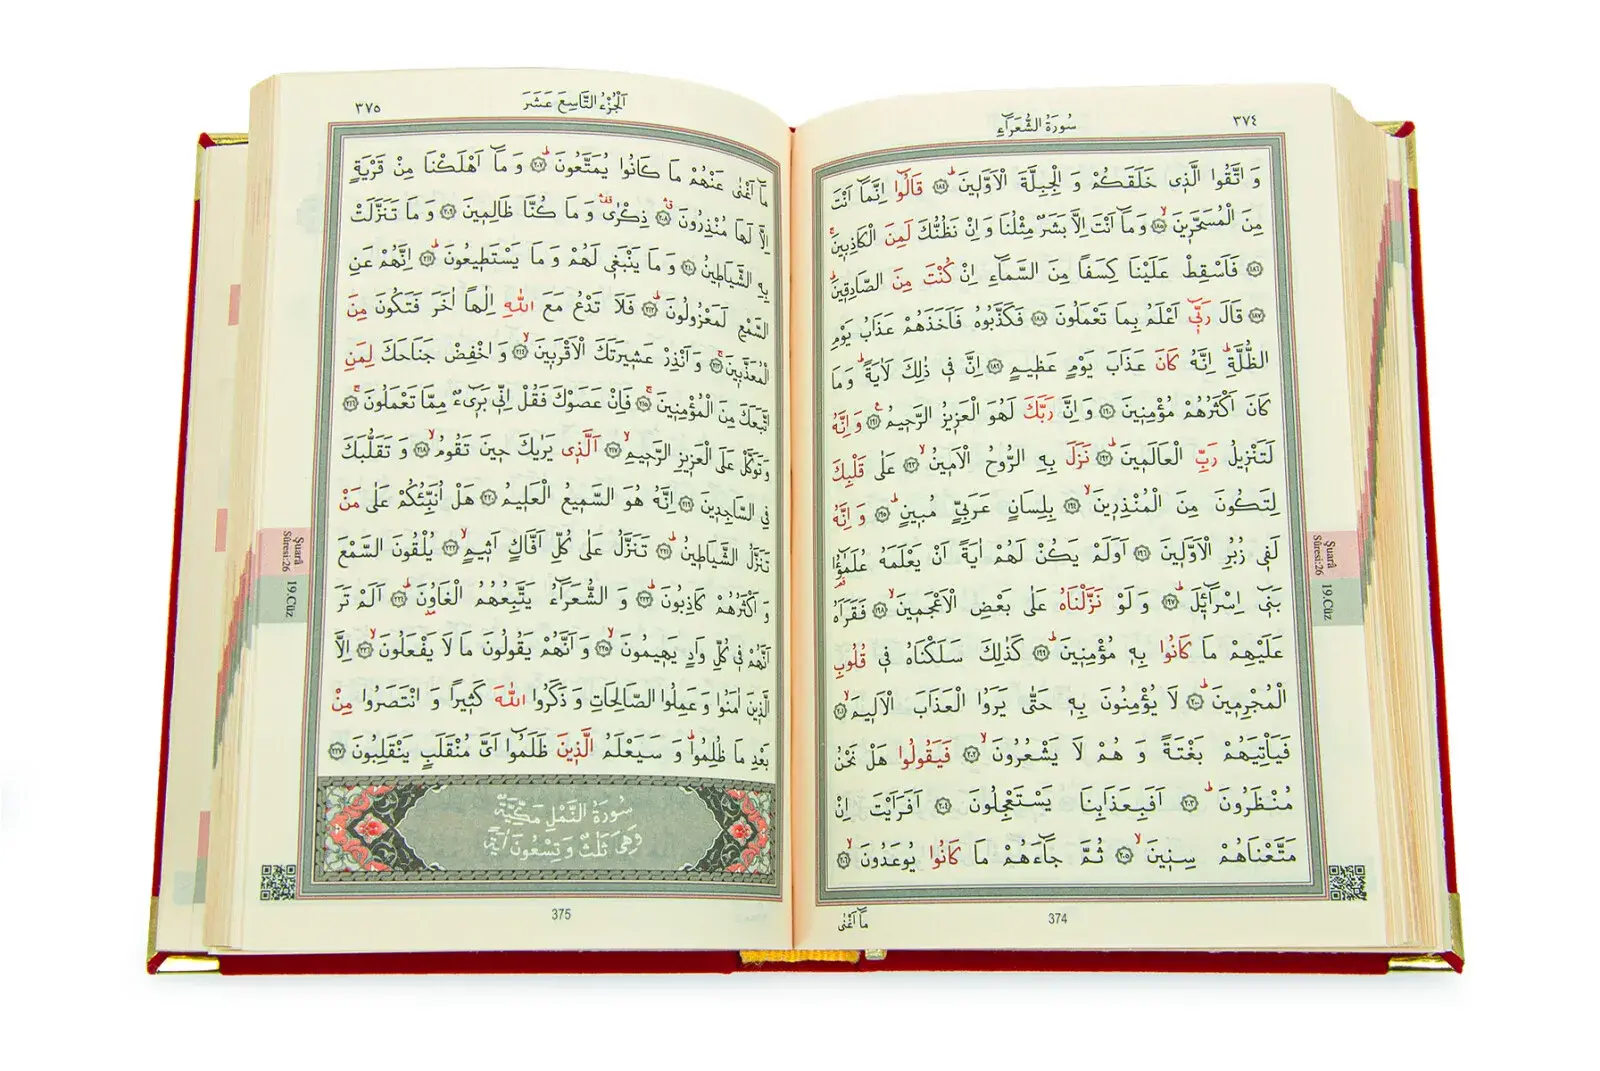 ٣٧٤
سُورَةُ الشُّعَرَاءِ
وَاتَّقُوا الَّذِى خَلَقَكُمْ وَالْجِبِلَّةَ الْاَوَّلِينَۜ ﴿١٨٤﴾ قَالُٓوا اِنَّمَٓا اَنْتَ
مِنَ الْمُسَحَّرِينَۙ ﴿١٨٥﴾ وَمَٓا اَنْتَ اِلَّا بَشَرٌ مِثْلُنَا وَاِنْ نَظُنُّكَ لَمِنَ الْكَاذِبِينَۚ
﴿١٨٦﴾ فَاَسْقِطْ عَلَيْنَا كِسَفًا مِنَ السَّمَٓاءِ اِنْ كُنْتَ مِنَ الصَّادِقِينَۜ
﴿١٨٧﴾ قَالَ رَبِّٓى اَعْلَمُ بِمَا تَعْمَلُونَ ﴿١٨٨﴾ فَكَذَّبُوهُ فَاَخَذَهُمْ عَذَابُ يَوْمِ
الظُّلَّةِۜ اِنَّهُ كَانَ عَذَابَ يَوْمٍ عَظِيمٍ ﴿١٨٩﴾ اِنَّ فِى ذٰلِكَ لَاٰيَةًۜ وَمَا
كَانَ اَكْثَرُهُمْ مُؤْمِنِينَ ﴿١٩٠﴾ وَاِنَّ رَبَّكَ لَهُوَ الْعَزِيزُ الرَّحِيمُ ﴿١٩١﴾ وَاِنَّهُ
لَتَنْزِيلُ رَبِّ الْعَالَمِينَۜ ﴿١٩٢﴾ نَزَلَ بِهِ الرُّوحُ الْاَمِينُۙ ﴿١٩٣﴾ عَلٰى قَلْبِكَ
لِتَكُونَ مِنَ الْمُنْذِرِينَۙ ﴿١٩٤﴾ بِلِسَانٍ عَرَبِىٍّ مُبِينٍۜ ﴿١٩٥﴾ وَاِنَّهُ
لَفِى زُبُرِ الْاَوَّلِينَ ﴿١٩٦﴾ اَوَلَمْ يَكُنْ لَهُمْ اٰيَةً اَنْ يَعْلَمَهُ عُلَمٰٓؤُا
بَنِٓى اِسْرَٓائِلَۜ ﴿١٩٧﴾ وَلَوْ نَزَّلْنَاهُ عَلٰى بَعْضِ الْاَعْجَمِينَۙ ﴿١٩٨﴾ فَقَرَاَهُ
عَلَيْهِمْ مَا كَانُوا بِهِ مُؤْمِنِينَۜ ﴿١٩٩﴾ كَذٰلِكَ سَلَكْنَاهُ فِى قُلُوبِ
الْمُجْرِمِينَۜ ﴿٢٠٠﴾ لَا يُؤْمِنُونَ بِهِ حَتّٰى يَرَوُا الْعَذَابَ الْاَلِيمَۙ ﴿٢٠١﴾
فَيَاْتِيَهُمْ بَغْتَةً وَهُمْ لَا يَشْعُرُونَۙ ﴿٢٠٢﴾ فَيَقُولُوا هَلْ نَحْنُ
مُنْظَرُونَۜ ﴿٢٠٣﴾ اَفَبِعَذَابِنَا يَسْتَعْجِلُونَ ﴿٢٠٤﴾ اَفَرَاَيْتَ اِنْ
مَتَّعْنَاهُمْ سِنِينَۙ ﴿٢٠٥﴾ ثُمَّ جَٓاءَهُمْ مَا كَانُوا يُوعَدُونَۙ ﴿٢٠٦﴾
374
مَٓا اَغْنٰى
Şuarâ
Sûresi:26
19.Cüz
٣٧٥
اَلْجُزْءُ التَّاسِعَ عَشَرَ
مَٓا اَغْنٰى عَنْهُمْ مَا كَانُوا يُمَتَّعُونَۜ ﴿٢٠٧﴾ وَمَٓا اَهْلَكْنَا مِنْ قَرْيَةٍ
اِلَّا لَهَا مُنْذِرُونَ ﴿٢٠٨﴾ ذِكْرٰى وَمَا كُنَّا ظَالِمِينَ ﴿٢٠٩﴾ وَمَا تَنَزَّلَتْ
بِهِ الشَّيَاطِينُ ﴿٢١٠﴾ وَمَا يَنْبَغِى لَهُمْ وَمَا يَسْتَطِيعُونَۜ ﴿٢١١﴾ اِنَّهُمْ عَنِ
السَّمْعِ لَمَعْزُولُونَۜ ﴿٢١٢﴾ فَلَا تَدْعُ مَعَ اللّٰهِ اِلٰهًا اٰخَرَ فَتَكُونَ مِنَ
الْمُعَذَّبِينَۚ ﴿٢١٣﴾ وَاَنْذِرْ عَشِيرَتَكَ الْاَقْرَبِينَۙ ﴿٢١٤﴾ وَاخْفِضْ جَنَاحَكَ لِمَنِ
اتَّبَعَكَ مِنَ الْمُؤْمِنِينَۚ ﴿٢١٥﴾ فَاِنْ عَصَوْكَ فَقُلْ اِنِّى بَرِٓىءٌ مِمَّا تَعْمَلُونَۚ ﴿٢١٦﴾
وَتَوَكَّلْ عَلَى الْعَزِيزِ الرَّحِيمِۙ ﴿٢١٧﴾ اَلَّذِى يَرٰيكَ حِينَ تَقُومُۙ ﴿٢١٨﴾ وَتَقَلُّبَكَ
فِى السَّاجِدِينَ ﴿٢١٩﴾ اِنَّهُ هُوَ السَّمِيعُ الْعَلِيمُ ﴿٢٢٠﴾ هَلْ اُنَبِّئُكُمْ عَلٰى مَنْ
تَنَزَّلُ الشَّيَاطِينُۜ ﴿٢٢١﴾ تَنَزَّلُ عَلٰى كُلِّ اَفَّاكٍ اَثِيمٍۙ ﴿٢٢٢﴾ يُلْقُونَ السَّمْعَ
وَاَكْثَرُهُمْ كَاذِبُونَۜ ﴿٢٢٣﴾ وَالشُّعَرَٓاءُ يَتَّبِعُهُمُ الْغَاوُنَۜ ﴿٢٢٤﴾ اَلَمْ تَرَ
اَنَّهُمْ فِى كُلِّ وَادٍ يَهِيمُونَۙ ﴿٢٢٥﴾ وَاَنَّهُمْ يَقُولُونَ مَا لَا يَفْعَلُونَۙ ﴿٢٢٦﴾ اِلَّا
الَّذِينَ اٰمَنُوا وَعَمِلُوا الصَّالِحَاتِ وَذَكَرُوا اللّٰهَ كَثِيرًا وَانْتَصَرُوا مِنْ
بَعْدِ مَا ظُلِمُواۜ وَسَيَعْلَمُ الَّذِينَ ظَلَمُٓوا اَىَّ مُنْقَلَبٍ يَنْقَلِبُونَ ﴿٢٢٧﴾
سُورَةُ النَّمْلِ مَكِّيَّةٌ
وَهِىَ ثَلٰثٌ وَتِسْعُونَ اٰيَةً
375
Şuarâ
Sûresi:26
19.Cüz